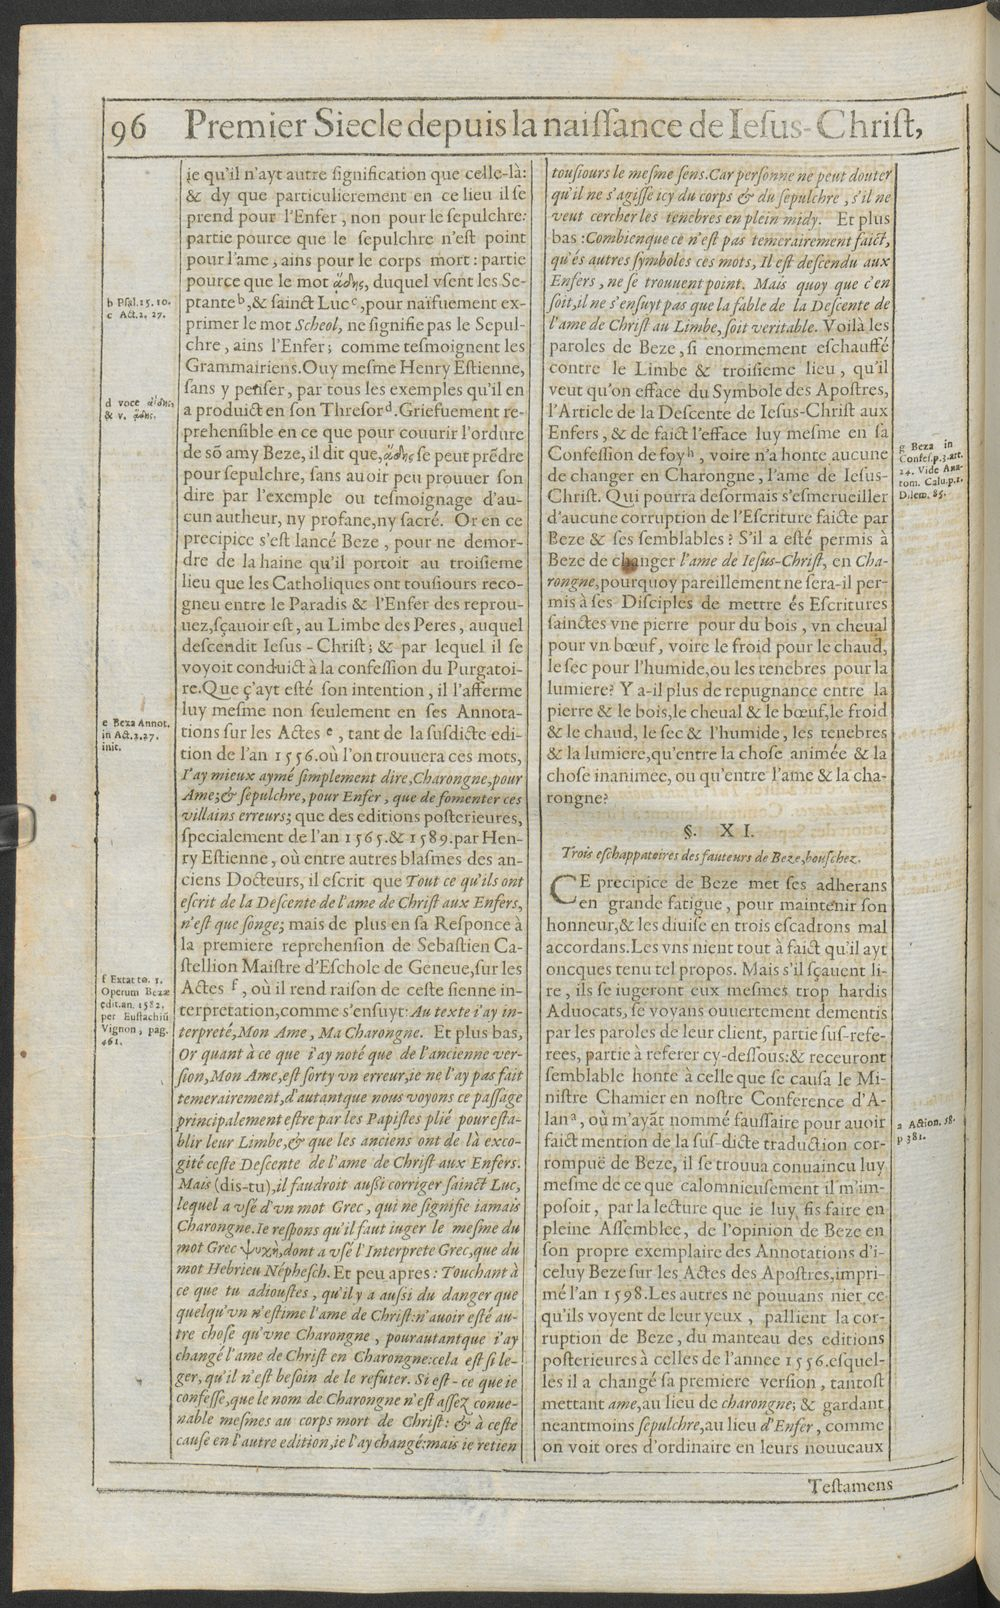 96 Premier Siecle depuis la naiſſance de Ieſus-Chriſt,
ie qu'il n'ayt autre ſignification que celle-là:
& dy que particulierement en ce lieu il ſe
prend pour l'Enfer, non pour le ſepulchre:
partie pource que le ſepulchre n'eſt point
pour l'ame, ains pour le corps mort: partie
pource que le mot ᾅδης, duquel vſent les Se-
ptante b, & ſainct Luc c, pour naïfuement ex-
primer le mot Scheol, ne ſignifie pas le Sepul-
chre, ains l'Enfer; comme teſmoignent les
Grammairiens. Ouy meſme Henry Eſtienne,
ſans y penſer, par tous les exemples qu'il en
a produict en ſon Threſor d. Griefuement re-
prehenſible en ce que pour couurir l'ordure
de sõ amy Beze, il dit que, ᾅδης ſe peut prẽdre
pour ſepulchre, ſans auoir peu prouuer ſon
dire par l'exemple ou teſmoignage d'au-
cun autheur, ny profane, ny ſacré. Or en ce
precipice s'eſt lancé Beze, pour ne demor-
dre de la haine qu'il portoit au troiſieme
lieu que les Catholiques ont touſiours reco-
gneu entre le Paradis & l'Enfer des reprou-
uez, ſçauoir eſt, au Limbe des Peres, auquel
deſcendit Ieſus-Chriſt; & par lequel il ſe
voyoit conduict à la confeſſion du Purgatoi-
re. Que ç'ayt eſté ſon intention, il l'afferme
luy meſme non ſeulement en ſes Annota-
tions ſur les Actes e, tant de la ſuſdicte edi-
tion de l'an 1556. où l'on trouuera ces mots,
I'ay mieux aymé ſimplement dire, Charongne, pour
Ame; & ſepulchre, pour Enfer, que de fomenter ces
villains erreurs; que des editions poſterieures,
ſpecialement de l'an 1565. & 1589. par Hen-
ry Eſtienne, où entre autres blaſmes des an-
ciens Docteurs, il eſcrit que Tout ce qu'ils ont
eſcrit de la Deſcente de l'ame de Chriſt aux Enfers,
n'eſt que ſonge; mais de plus en ſa Reſponce à
la premiere reprehenſion de Sebaſtien Ca-
ſtellion Maiſtre d'Eſchole de Geneue, ſur les
Actes f, où il rend raiſon de ceſte ſienne in-
terpretation, comme s'enſuyt: Au texte i'ay in-
terpreté, Mon Ame, Ma Charongne. Et plus bas,
Or quant à ce que i'ay noté que de l'ancienne ver-
ſion, Mon Ame, eſt ſorty vn erreur, ie ne l'ay pas fait
temerairement, d'autant que nous voyons ce paſſage
principalement eſtre par les Papiſtes plié pour eſta-
blir leur Limbe, & que les anciens ont de là exco-
gité ceſte Deſcente de l'ame de Chriſt aux Enfers.
Mais (dis-tu), il faudroit auſſi corriger ſainct Luc,
lequel a vſé d'vn mot Grec, qui ne ſignifie iamais
Charongne. Ie reſpons qu'il faut iuger le meſme du
mot Grec ψυχὴ, dont a vſé l'Interprete Grec, que du
mot Hebrieu Népheſch. Et peu apres: Touchant à
ce que tu adiouſtes, qu'il y a auſſi du danger que
quelqu'vn n'eſtime l'ame de Chriſt n'auoir eſté au-
tre choſe qu'vne Charongne, pourautantque i'ay
changé l'ame de Chriſt en Charongne: cela eſt ſi le-
ger, qu'il n'eſt beſoin de le refuter. Si eſt-ce que ie
confeſſe, que le nom de Charongne n'eſt aſſez conue-
nable meſmes au corps mort de Chriſt: & à ceſte
cauſe en l'autre edition, ie l'ay changé: mais ie retien
b Pſal. 15. 10.
c Act. 2, 27.
d voce
& v. ᾅδης.
e Beza Annot.
in Act. 2. 27.
init.
f Extat to. 1.
Operum Bezæ
edit. an. 1582.
per Euſtachiũ
Vignon, pag.
461.
touſiours le meſme ſens. Car perſonne ne peut douter
qu'il ne s'agiſſe icy du corps & du ſepulchre, s'il ne
veut cercher les tenebres en plein midy. Et plus
bas: Combienque ce n'eſt pas temerairement faict,
qu'és autres ſymboles ces mots, Il eſt deſcendu aux
Enfers, ne ſe trouuent point. Mais quoy que ç'en
ſoit, il ne s'enſuyt pas que la fable de la Deſcente de
l'ame de Chriſt au Limbe, ſoit veritable. Voilà les
paroles de Beze, ſi enormement eſchauffé
contre le Limbe & troiſieme lieu, qu'il
veut qu'on efface du Symbole des Apoſtres,
l'Article de la Deſcente de Ieſus-Chriſt aux
Enfers, & de faict l'efface luy meſme en ſa
Confeſſion de foy h, voire n'a honte aucune
de changer en Charongne, l'ame de Ieſus-
Chriſt. Qui pourra deſormais s'eſmerueiller
d'aucune corruption de l'Eſcriture faicte par
Beze & ſes ſemblables? S'il a eſté permis à
Beze de changer l'ame de Ieſus-Chriſt, en Cha-
rongne, pourquoy pareillement ne ſera-il per-
mis à ſes Diſciples de mettre és Eſcritures
ſainctes vne pierre pour du bois, vn cheual
pour vn bœuf, voire le froid pour le chaud,
le ſec pour l'humide, ou les tenebres pour la
lumiere? Y a-il plus de repugnance entre la
pierre & le bois, le cheual & le bœuf, le froid
& le chaud, le ſec & l'humide, les tenebres
& la lumiere, qu'entre la choſe animée & la
choſe inanimee, ou qu'entre l'ame & la cha-
rongne?
§. XI.
Trois eſchappatoires des fauteurs de Beze, bouſchez.
CE precipice de Beze met ſes adherans
en grande fatigue, pour maintenir ſon
honneur, & les diuiſe en trois eſcadrons mal
accordans. Les vns nient tout à faict qu'il ayt
oncques tenu tel propos. Mais s'il ſçauent li-
re, ils ſe iugeront eux meſmes trop hardis
Aduocats, ſe voyans ouuertement dementis
par les paroles de leur client, partie ſuſ-refe-
rees, partie à referer cy-deſſous: & receuront
ſemblable honte à celle que ſe cauſa le Mi-
niſtre Chamier en noſtre Conference d'A-
lan a, où m'ayãt nommé fauſſaire pour auoir
faict mention de la ſuſ-dicte traduction cor-
rompuë de Beze, il ſe trouua conuaincu luy
meſme de ce que calomnieuſement il m'im-
poſoit, par la lecture que ie luy fis faire en
pleine Aſſemblee, de l'opinion de Beze en
ſon propre exemplaire des Annotations d'i-
celuy Beze ſur les Actes des Apoſtres, impri-
mé l'an 1598. Les autres ne pouuans nier ce
qu'ils voyent de leur yeux, pallient la cor-
ruption de Beze, du manteau des editions
poſterieures à celles de l'annee 1556. eſquel-
les il a changé ſa premiere verſion, tantoſt
mettant ame, au lieu de charongne; & gardant
neantmoins ſepulchre, au lieu d'Enfer, comme
on voit ores d'ordinaire en leurs nouueaux
g Beza in
Confeſ. p. 3. art.
24. Vide Ana-
tom. Calu. p. 1.
Dilem. 85.
a Action. 58.
p 381.
Teſtamens